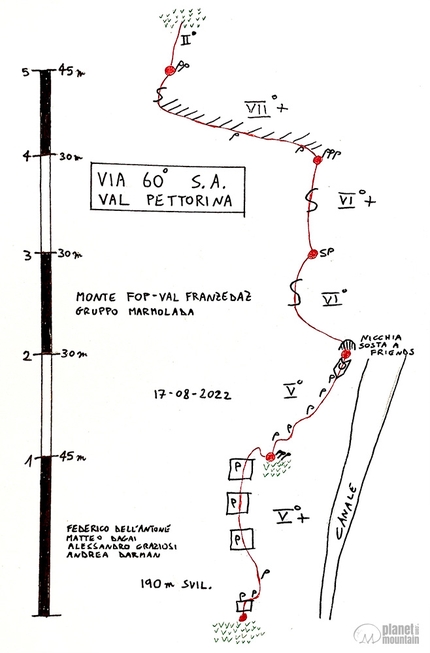 II°
5 45 m
VII°+
P
4 30 m
VIA 60° S.A.
VAL PETTORINA
VI°+
3 30 m SP
MONTE FOP-VAL FRANZEDAZ
GRUPPO MARMOLADA
VI°
NICCHIA
SOSTA A
FRIENDS
2 30 m
17-08-2022
V°
P
P
P
P
P
1 45 m
P
P
P
V°+
CANALE
FEDERICO DELL'ANTONE
MATTEO DAGAI
ALESSANDRO GRAZIOSI
ANDREA DARMAN
190 m SVIL.
P
P P
planet mountain